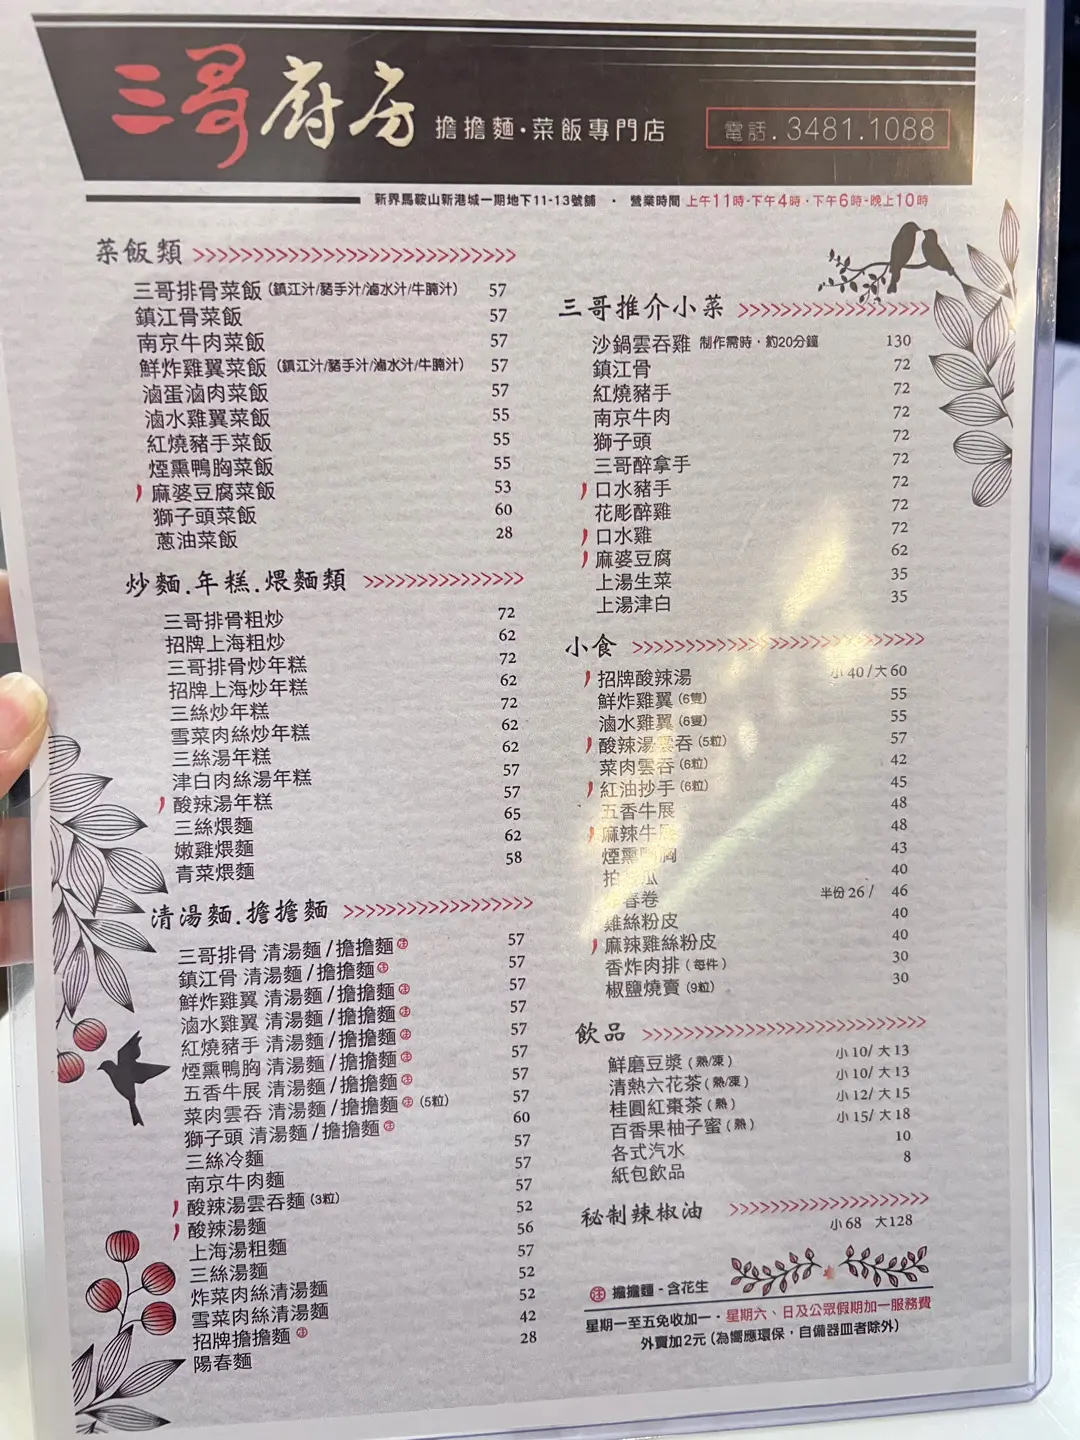 三哥廚房 擔擔麵・菜飯專門店 電話.3481.1088
新界馬鞍山新港城一期地下11-13號舖 · 營業時間 上午11時-下午4時・下午6時-晚上10時
菜飯類
三哥排骨菜飯 (鎮江汁/豬手汁/滷水汁/牛腩汁) 57
鎮江骨菜飯 57
南京牛肉菜飯 57
鮮炸雞翼菜飯 (鎮江汁/豬手汁/滷水汁/牛腩汁) 57
滷蛋滷肉菜飯 57
滷水雞翼菜飯 55
紅燒豬手菜飯 55
煙熏鴨胸菜飯 55
麻婆豆腐菜飯 53
獅子頭菜飯 60
蔥油菜飯 28
炒麵.年糕.煨麵類
三哥排骨粗炒 72
招牌上海粗炒 62
三哥排骨炒年糕 72
招牌上海炒年糕 62
三絲炒年糕 72
雪菜肉絲炒年糕 62
三絲湯年糕 62
津白肉絲湯年糕 57
酸辣湯年糕 57
三絲煨麵 65
嫩雞煨麵 62
青菜煨麵 58
清湯麵.擔擔麵
三哥排骨 清湯麵/擔擔麵 注 57
鎮江骨 清湯麵/擔擔麵 注 57
鮮炸雞翼 清湯麵/擔擔麵 注 57
滷水雞翼 清湯麵/擔擔麵 注 57
紅燒豬手 清湯麵/擔擔麵 注 57
煙熏鴨胸 清湯麵/擔擔麵 注 57
五香牛展 清湯麵/擔擔麵 注 57
菜肉雲吞 清湯麵/擔擔麵 注 (5粒) 57
獅子頭 清湯麵/擔擔麵 注 60
三絲冷麵 57
南京牛肉麵 57
酸辣湯雲吞麵 (3粒) 57
酸辣湯麵 52
上海湯粗麵 56
三絲湯麵 57
炸菜肉絲清湯麵 52
雪菜肉絲清湯麵 52
招牌擔擔麵 注 42
陽春麵 28
三哥推介小菜
沙鍋雲吞雞 制作需時・約20分鐘 130
鎮江骨 72
紅燒豬手 72
南京牛肉 72
獅子頭 72
三哥醉拿手 72
口水豬手 72
花彫醉雞 72
口水雞 72
麻婆豆腐 62
上湯生菜 35
上湯津白 35
小食
招牌酸辣湯 小 40/大 60
鮮炸雞翼 (6隻) 55
滷水雞翼 (6隻) 55
酸辣湯雲吞 (5粒) 57
菜肉雲吞 (6粒) 42
紅油抄手 (6粒) 45
五香牛展 48
麻辣牛展 48
煙熏鴨胸 43
拍 瓜 40
春卷 半份 26 / 46
雞絲粉皮 40
麻辣雞絲粉皮 40
香炸肉排 (每件) 30
椒鹽燒賣 (9粒) 30
飲品
鮮磨豆漿 (熱/凍) 小 10/ 大 13
清熱六花茶 (熱/凍) 小 10/ 大 13
桂圓紅棗茶 (熱) 小 12/ 大 15
百香果柚子蜜 (熱) 小 15/ 大 18
各式汽水 10
紙包飲品 8
秘制辣椒油
小 68 大 128
注 擔擔麵 - 含花生
星期一至五免收加一・星期六、日及公眾假期加一服務費
外賣加2元 (為嚮應環保，自備器皿者除外)